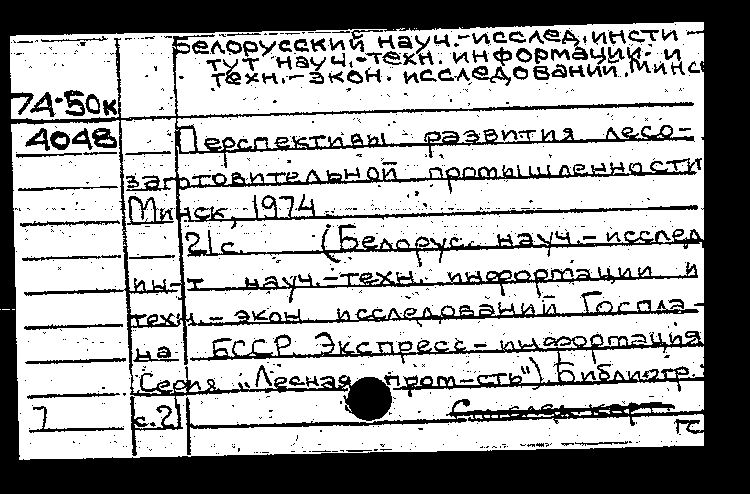 Белорусский науч.-исслед.инсти-
тут науч.-техн. информации и
техн.-экон. исследований.Минск
74-50к
4048 Перспективы развития лесо-
заготовительной промышленности
Минск, 1974
21с. (Белорус. науч.-исслед
ин-т науч.-техн. информации и
техн.-экон. исследований Госпла-
на БССР. Экспресс-информация
Серия „Лесная пром-сть"). Библиогр.:
7 с.21 См.след.карт.